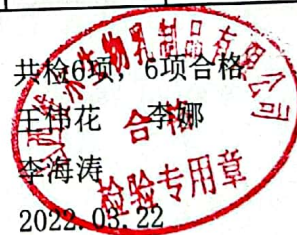 共检6项，6项合格
王伟花 李娜
李海涛
2022.03.22
生物乳制品有限公司
合格
检验专用章